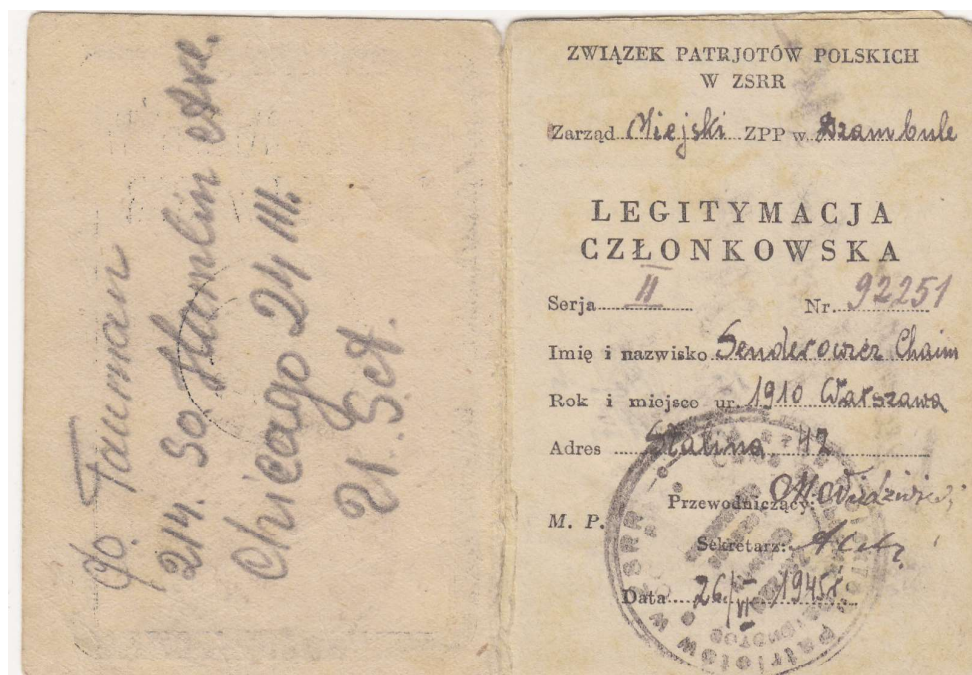 c/o. Tauman
214. So Hamlin Ave.
Chicago 24 Ill.
U. S. A.
ZWIĄZEK PATRJOTÓW POLSKICH
W ZSRR
Zarząd Miejski ZPP w Dzambule
LEGITYMACJA
CZŁONKOWSKA
Serja II Nr. 92251
Imię i nazwisko Senderowicz Chaim
Rok i miejsce ur. 1910 Warszawa
Adres Stalina 42
Przewodniczący:
M. P.
Sekretarz:
Data 26/VI 1945r